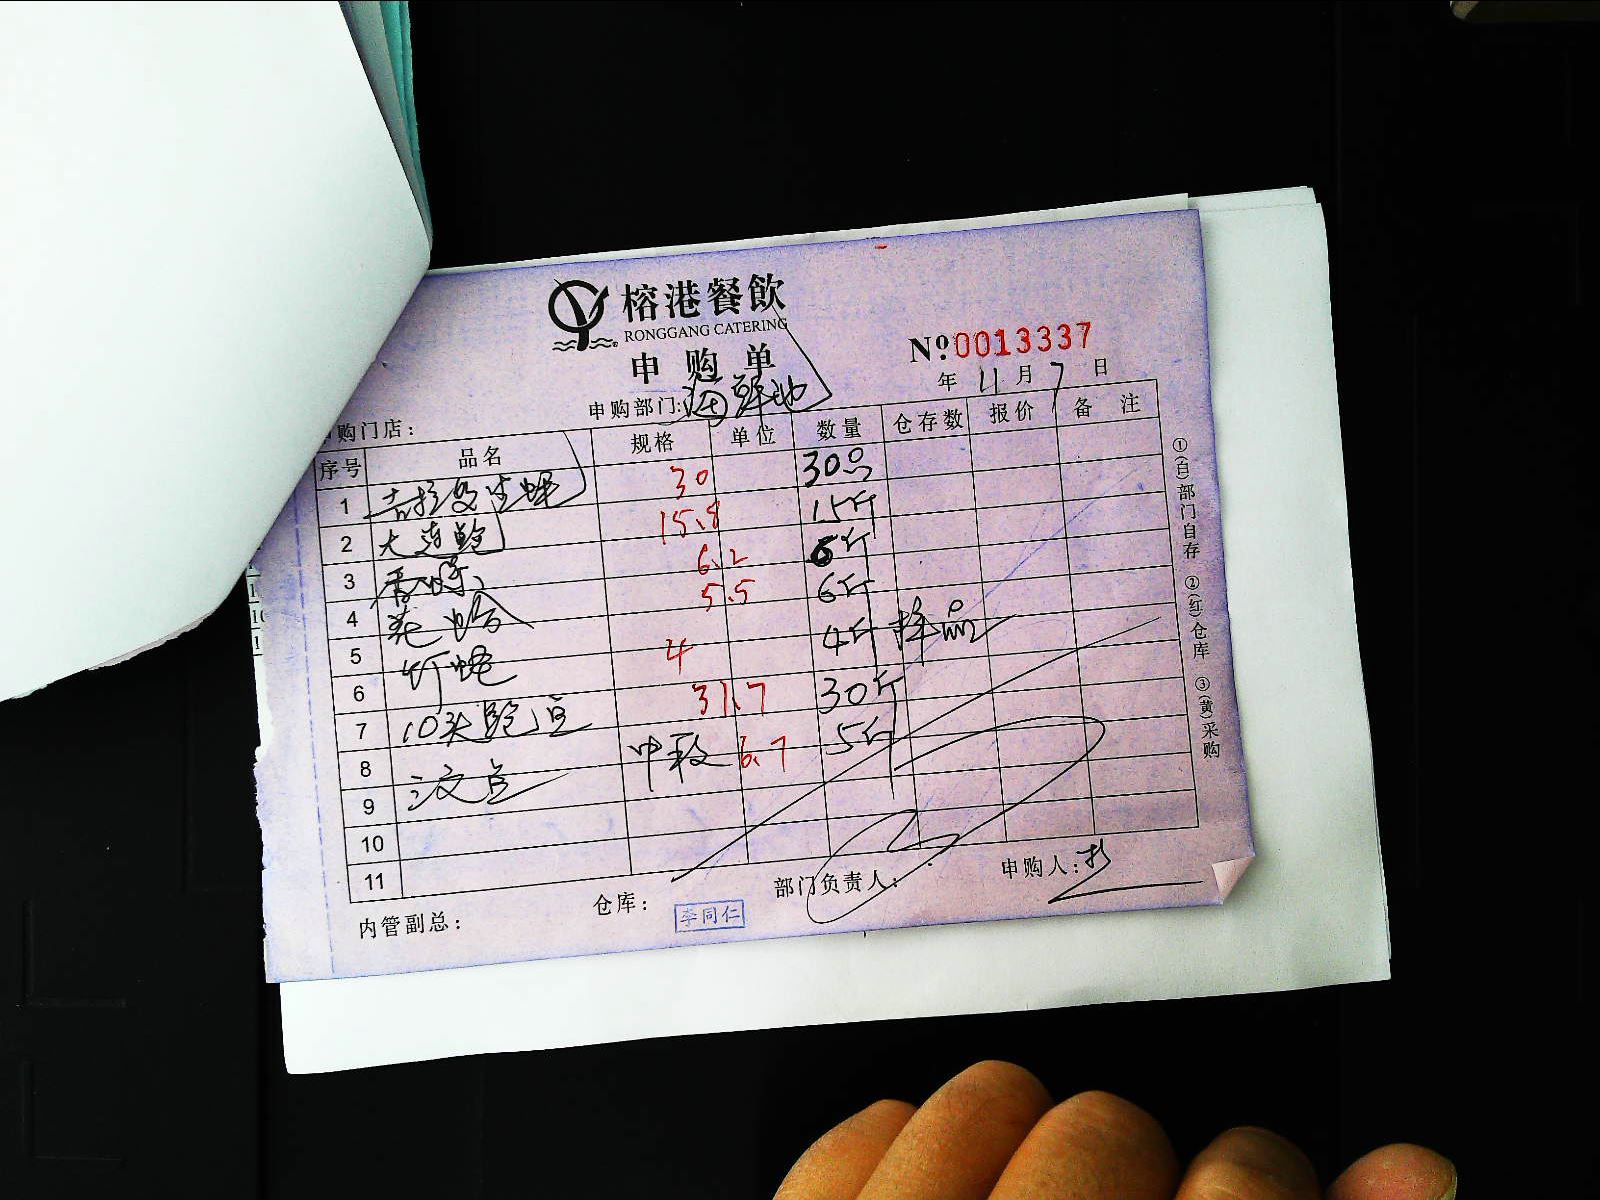 榕港餐飲
RONGGANG CATERING
申购单
№0013337
年 11 月 7 日
购门店： 申购部门:海鲜池
序号 品名 规格 单位 数量 仓存数 报价 备注
1 吉拉多生蚝 30 30只
2 大连鲍 15.8 15斤
3 香螺 6.2 6斤
4 花蛤 5.5 6斤
5 竹蛏 4 4斤 样品
6 10头鲍 31.7 30斤
7 5斤 6.7
8
9
10
11
内管副总： 仓库： 李同仁 部门负责人： 申购人：
①(白)部门自存 ②(红)仓库 ③(黄)采购